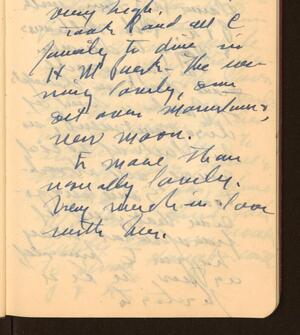 very high.
took E and all C
family to dine in
H M Park - The eve-
ning lovely, sun
set over mountains,
new moon.
E more than
usually lovely.
Very much in love
with her.